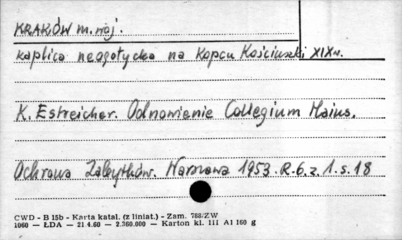 KRAKÓW m. woj.
kaplica neogotycka na Kopcu Kościuszki XIX w.
K. Estreicher. Odnowienie Collegium Maius.
Ochrona Zabytków. Warszawa 1953. R.6.z.1.s.18
CWD - B 15b - Karta katal. (z liniat.) - Zam. 788/ZW
1060 — ŁDA — 21.4.60 — 2.360.000 — Karton kl. III A1 160 g